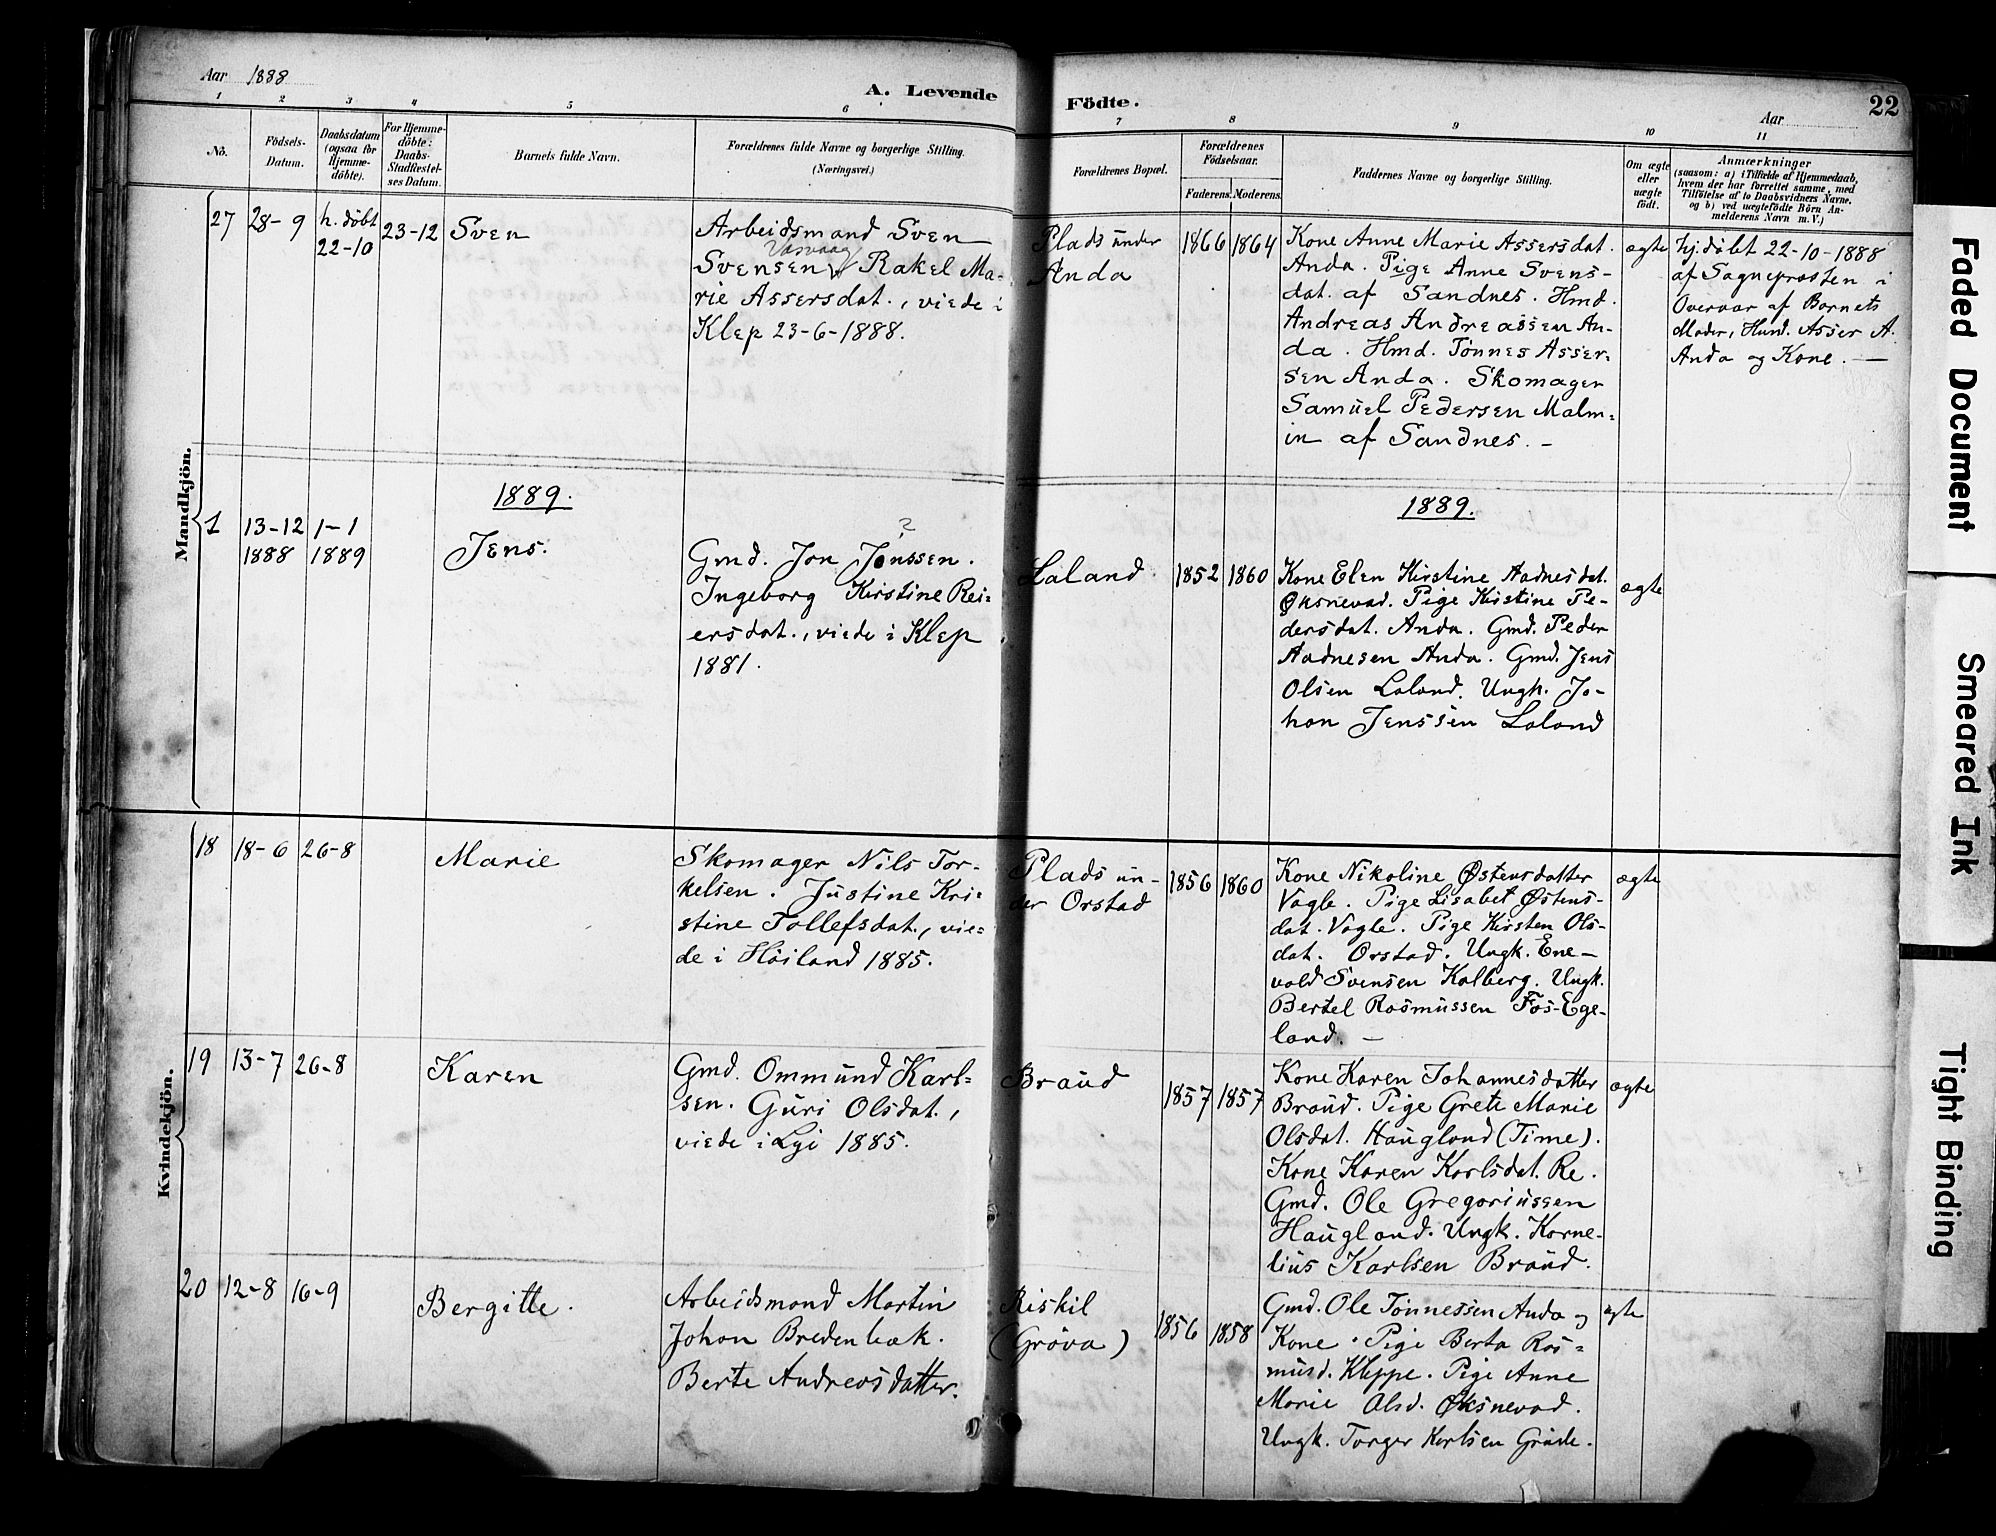 Aar 1888
A. Levende Födte.
Aar
22
1 2 3 4 5 6 7 8 9 10 11
No.
Födsels-
Datum.
Daabsdatum
(ogsaa for
Hjemme-
döbte).
For Hjemme-
döbte:
Daabs-
Stadfæstel-
ses Datum.
Barnets fulde Navn.
Forældrenes fulde Navne og borgerlige Stilling.
(Næringsvei.)
Forældrenes Bopæl.
Forældrenes
Födselsaar.
Faderens. Moderens.
Faddernes Navne og borgerlige Stilling.
Om ægte
eller
uægte
födt.
Anmærkninger
(saasom: a) i Tilfælde af Hjemmedaab,
hvem der har forrettet samme, med
Tilföielse af to Daabsvidners Navne.
og b) ved uægtefödte Börn An-
melderens Navn m. V.)
Mandkjön.
27
28-9
h. döbt
22-10
23-12
Sven
Arbeidsmand Sven
Svensen Rakel Ma-
rie Assersdat., viede i
Klep 23-6-1888.
Plads under
Anda
1866 1864
Kone Anne Marie Assersdat.
Anda. Pige Anne Svens-
dat. af Sandnes. Hmd.
Andreas Andreassen An-
da. Hmd. Tönnes Asser-
sen Anda. Skomager
Samuel Pedersen Malm-
in af Sandnes. -
ægte
hj. döbt 22-10-1888
af Sognepræsten i
Overvær af Barnets
Moder, Husmd. Asser A.
Anda og Kone. —
1889.
1889.
1
13-12
1888
1-1
1889
Jens.
?
Gmd. Jon Jonssen.
Ingeborg Kirstine Rei-
ersdat., viede i Klep
1881.
Laland
1852 1860
Kone Elen Kirstine Aadnesdat.
Øksnevad. Pige Kistine Pe-
dersdat. Anda. Gmd. Peder
Aadnesen Anda. Gmd. Jens
Olsen Laland. Ungk. Jo-
han Jenssen Laland
ægte
Kvindekjön.
18
18-6
26-8
Marie
Skomager Nils Tor-
kelsen. Justine Kri-
stine Tollefsdat., vie-
de i Höiland 1885.
Plads un-
der Orstad
1856 1860
Kone Nikoline Østensdatter
Vagle. Pige Lisabet Østens-
dat. Vagle. Pige Kirsten Ols-
dat. Orstad. Ungk. Ene-
vold Svensen Kalberg. Ungk.
Bertel Rasmussen Fos-Ege-
land. —
ægte
19
13-7
26-8
Karen
Gmd. Ommund Karl-
sen. Guri Olsdat.,
viede i Lye 1885.
Braud
1857 1857
Kone Karen Johannesdatter
Braud. Pige Grete Marie
Olsdat. Haugland (Time).
Kone Karen Karlsdat. Re.
Gmd. Ole Gregoriussen
Haugland. Ungk. Korne-
lius Karlsen Braud.
ægte
20
12-8
16-9
Bergitte.
Arbeidsmand Martin
Johan Bredenbak.
Berte Andreasdatter.
Riskil
(Gröva)
1856 1858
Gmd. Ole Tönnessen Anda og
Kone. Pige Berta Ras-
musd. Kleppe. Pige Anne
Marie Olsd. Øksnevad.
Ungk. Torger Karlsen Grude.
ægte
Faded Document
Smeared Ink
Tight Binding